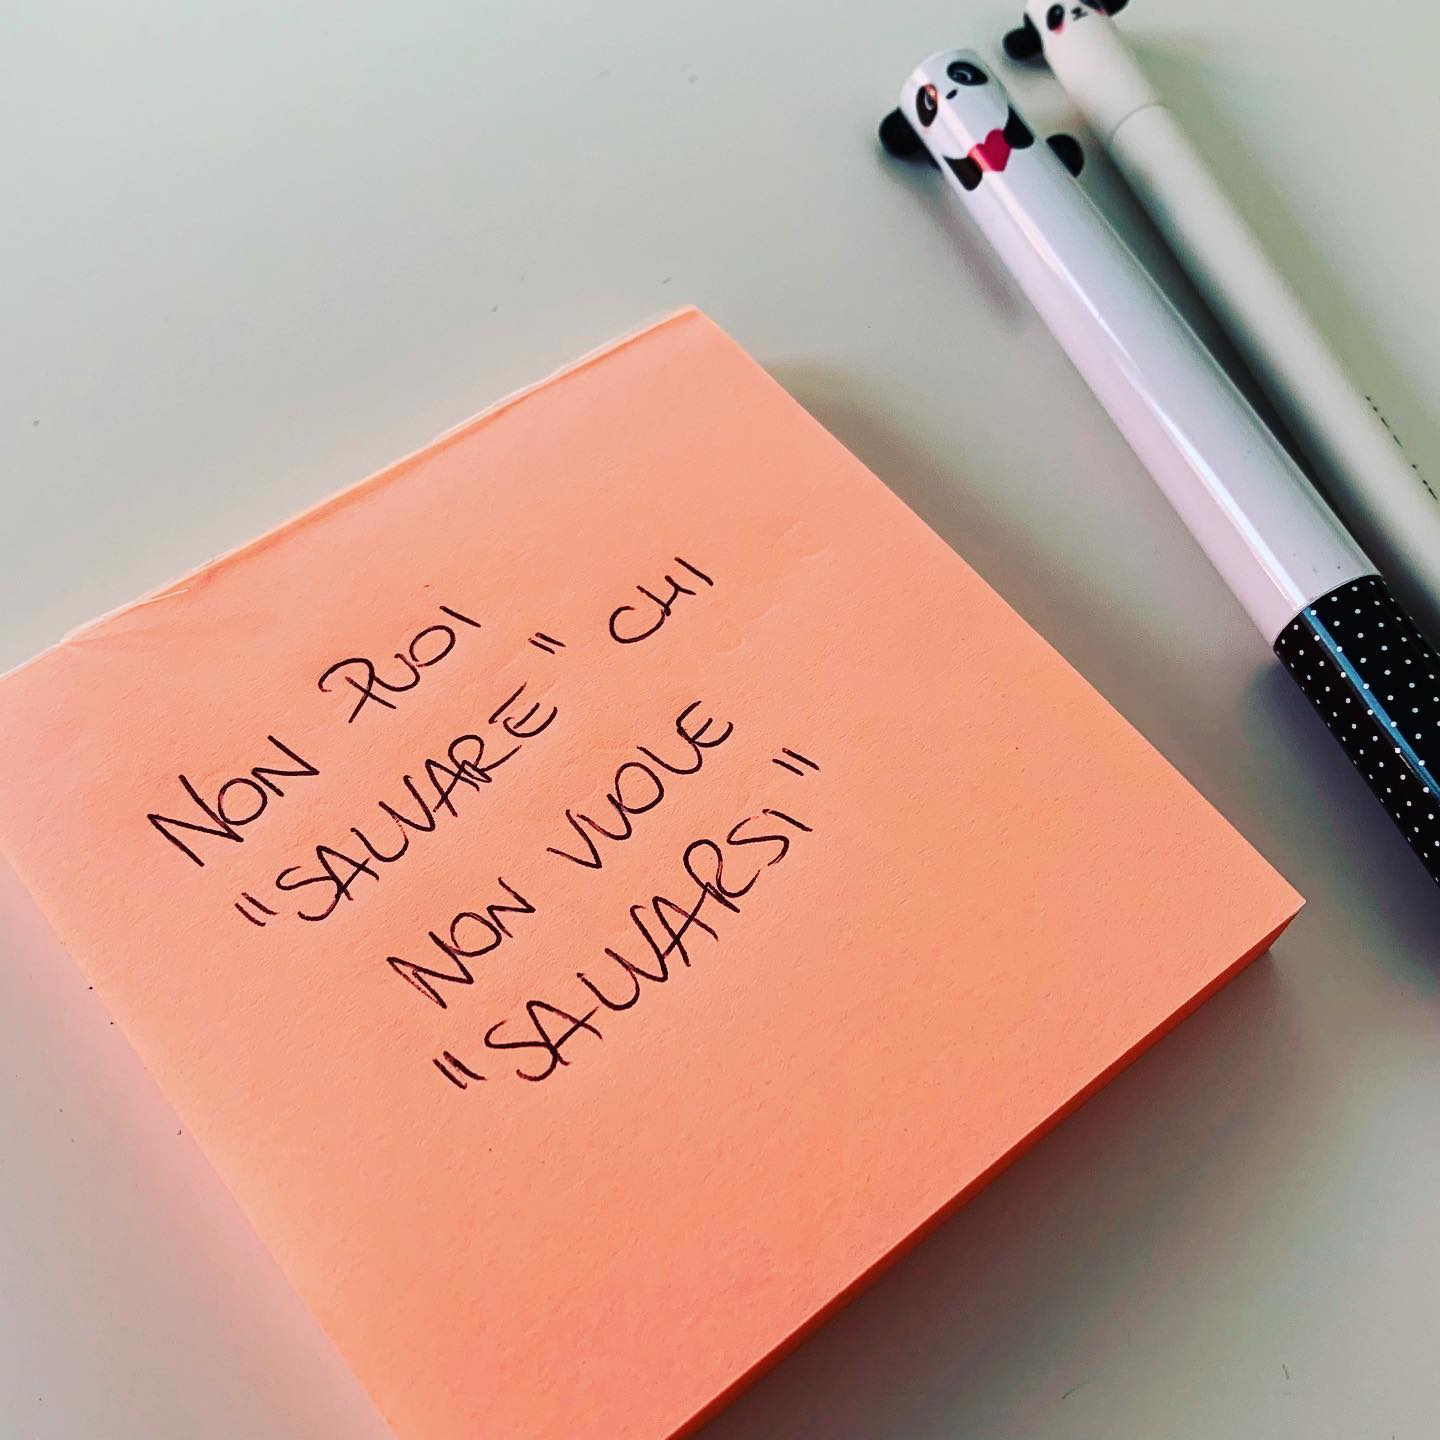 NON PUOI
"SALVARE" CHI
NON VUOLE
"SALVARSI"